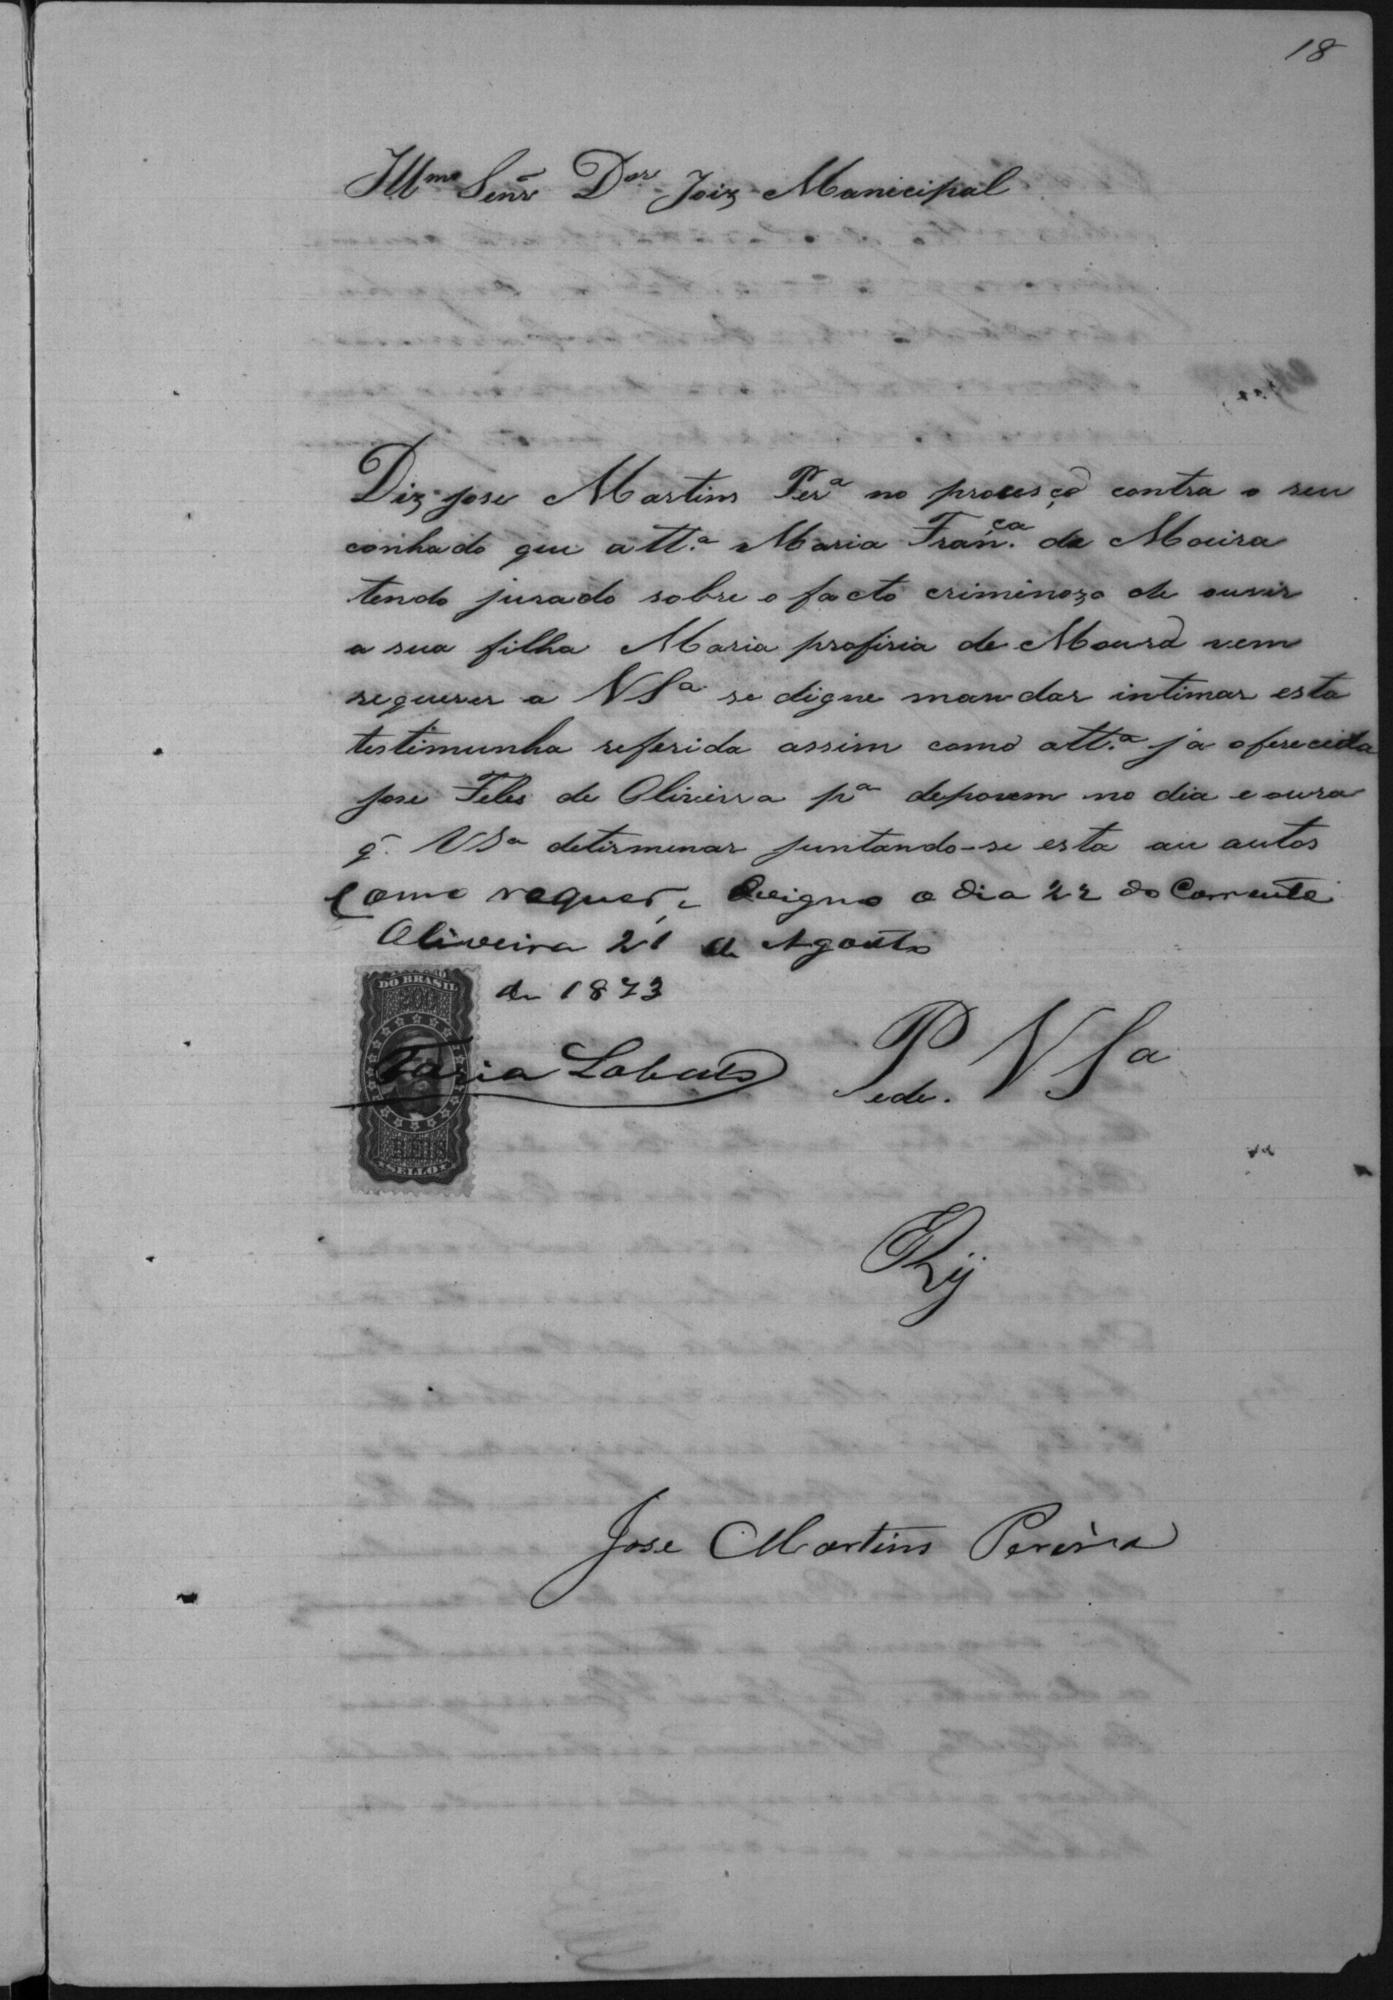 18
Illmo Senr Dor Joiz Manicipal
Diz jose Martins Pera no procesço contra o seu
conhado que a tt.a Maria Fran.ca de Moura
tendo jurado sobre o facto criminozo de ouvir
a sua filha Maria profiria de Moura vem
requerer a VSa se digne mandar intimar esta
testimunha referida assim como a tt.a ja oferecida
jose Teles de Oliveira pa deporem no dia e oura
q. VSa determenar juntando-se esta au autos
Como requer, e designo o dia 22 do Corrente
Oliveira 21 de Agosto
de 1873
DO BRASIL
200
Faria Lobato
REIS
SELLO
Pede. VSa
ERij
Jose Martins Pereira